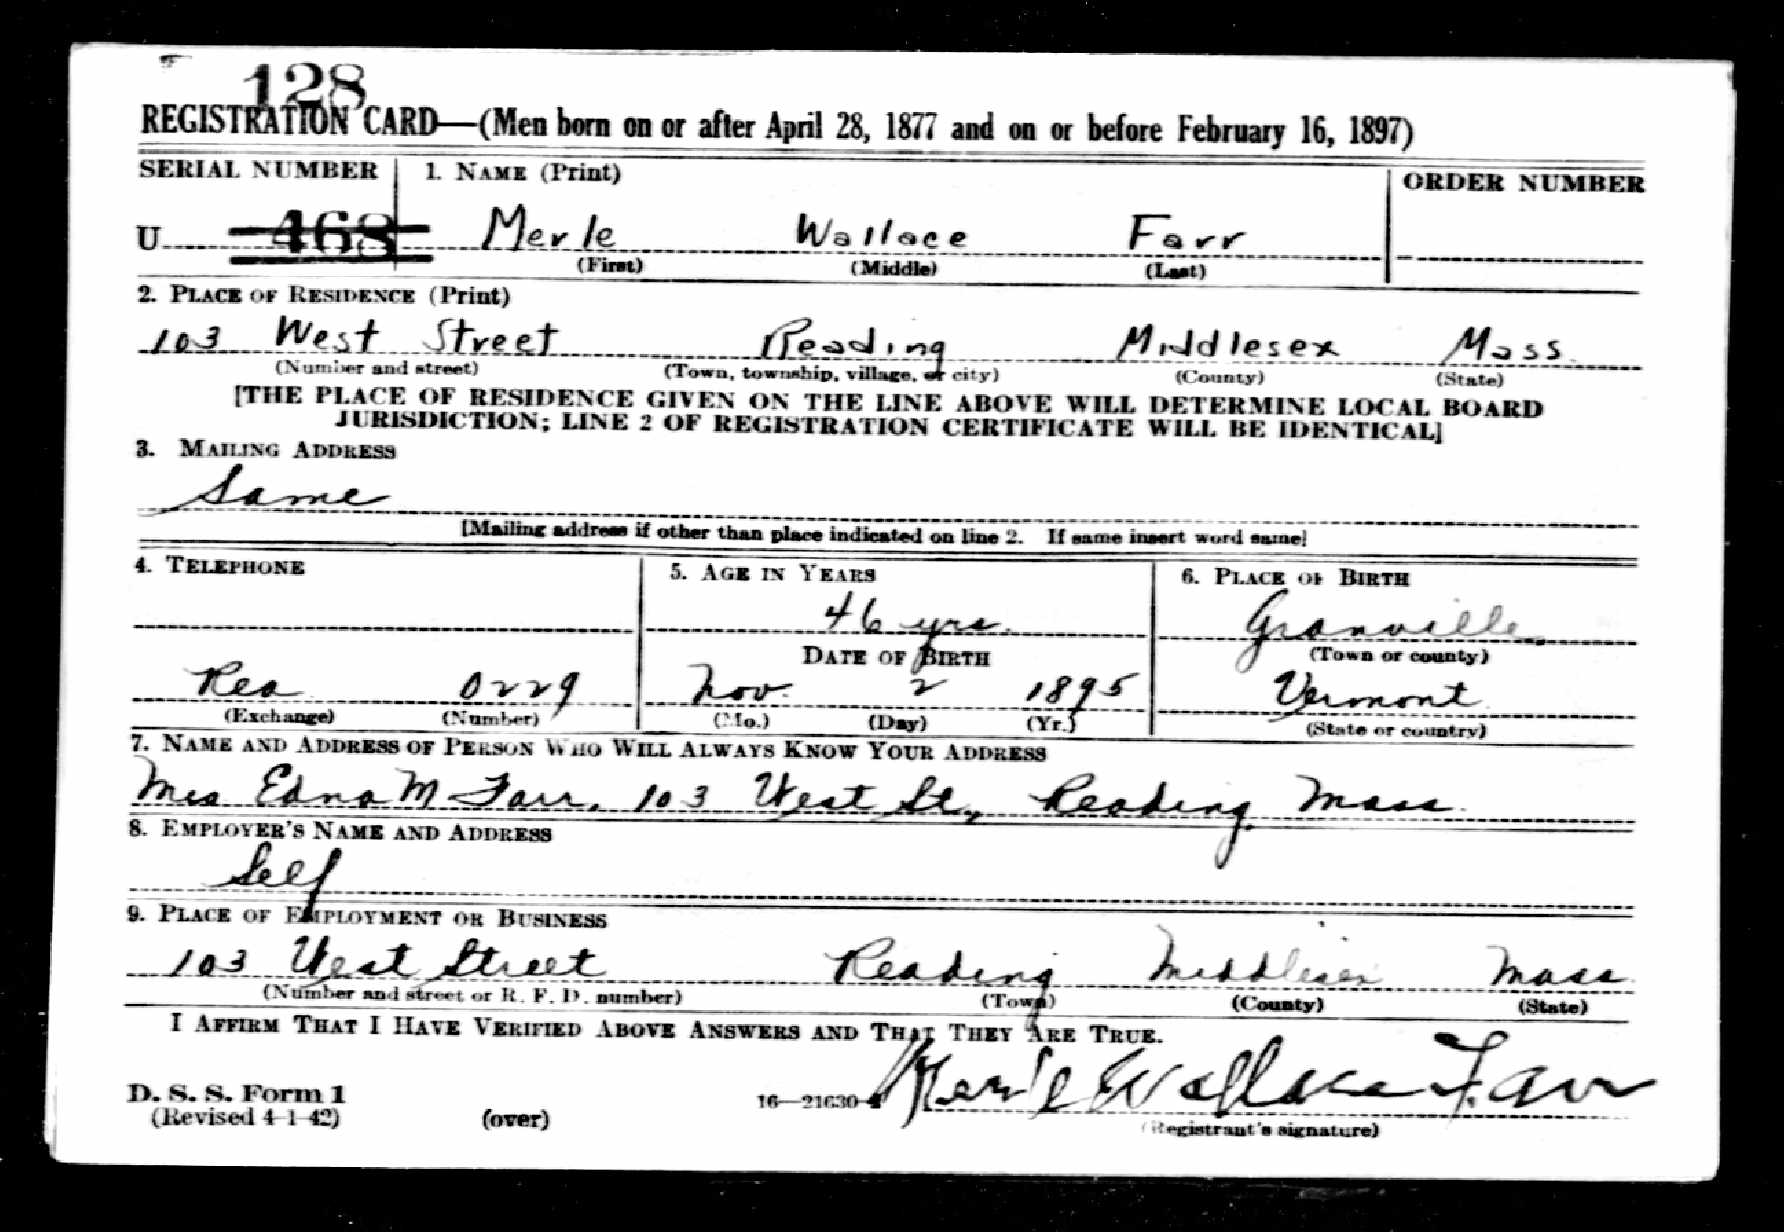 128
REGISTRATION CARD—(Men born on or after April 28, 1877 and on or before February 16, 1897)
SERIAL NUMBER 1. NAME (Print) ORDER NUMBER
U 468 Merle Wallace Farr
(First) (Middle) (Last)
2. PLACE OF RESIDENCE (Print)
103 West Street Reading Middlesex Mass
(Number and street) (Town, township, village, or city) (County) (State)
[THE PLACE OF RESIDENCE GIVEN ON THE LINE ABOVE WILL DETERMINE LOCAL BOARD
JURISDICTION; LINE 2 OF REGISTRATION CERTIFICATE WILL BE IDENTICAL]
3. MAILING ADDRESS
Same
[Mailing address if other than place indicated on line 2. If same insert word same]
4. TELEPHONE 5. AGE IN YEARS 6. PLACE OF BIRTH
46 yrs. Granville
DATE OF BIRTH (Town or county)
Rea 0229 Nov. 2 1895 Vermont
(Exchange) (Number) (Mo.) (Day) (Yr.) (State or country)
7. NAME AND ADDRESS OF PERSON WHO WILL ALWAYS KNOW YOUR ADDRESS
Mrs Edna M Farr, 103 West St., Reading, Mass.
8. EMPLOYER'S NAME AND ADDRESS
Self
9. PLACE OF EMPLOYMENT OR BUSINESS
103 West Street Reading Middlesex Mass
(Number and street or R. F. D. number) (Town) (County) (State)
I AFFIRM THAT I HAVE VERIFIED ABOVE ANSWERS AND THAT THEY ARE TRUE.
D. S. S. Form 1 16—21630 Merle Wallace Farr
(Revised 4-1-42) (over) (Registrant's signature)